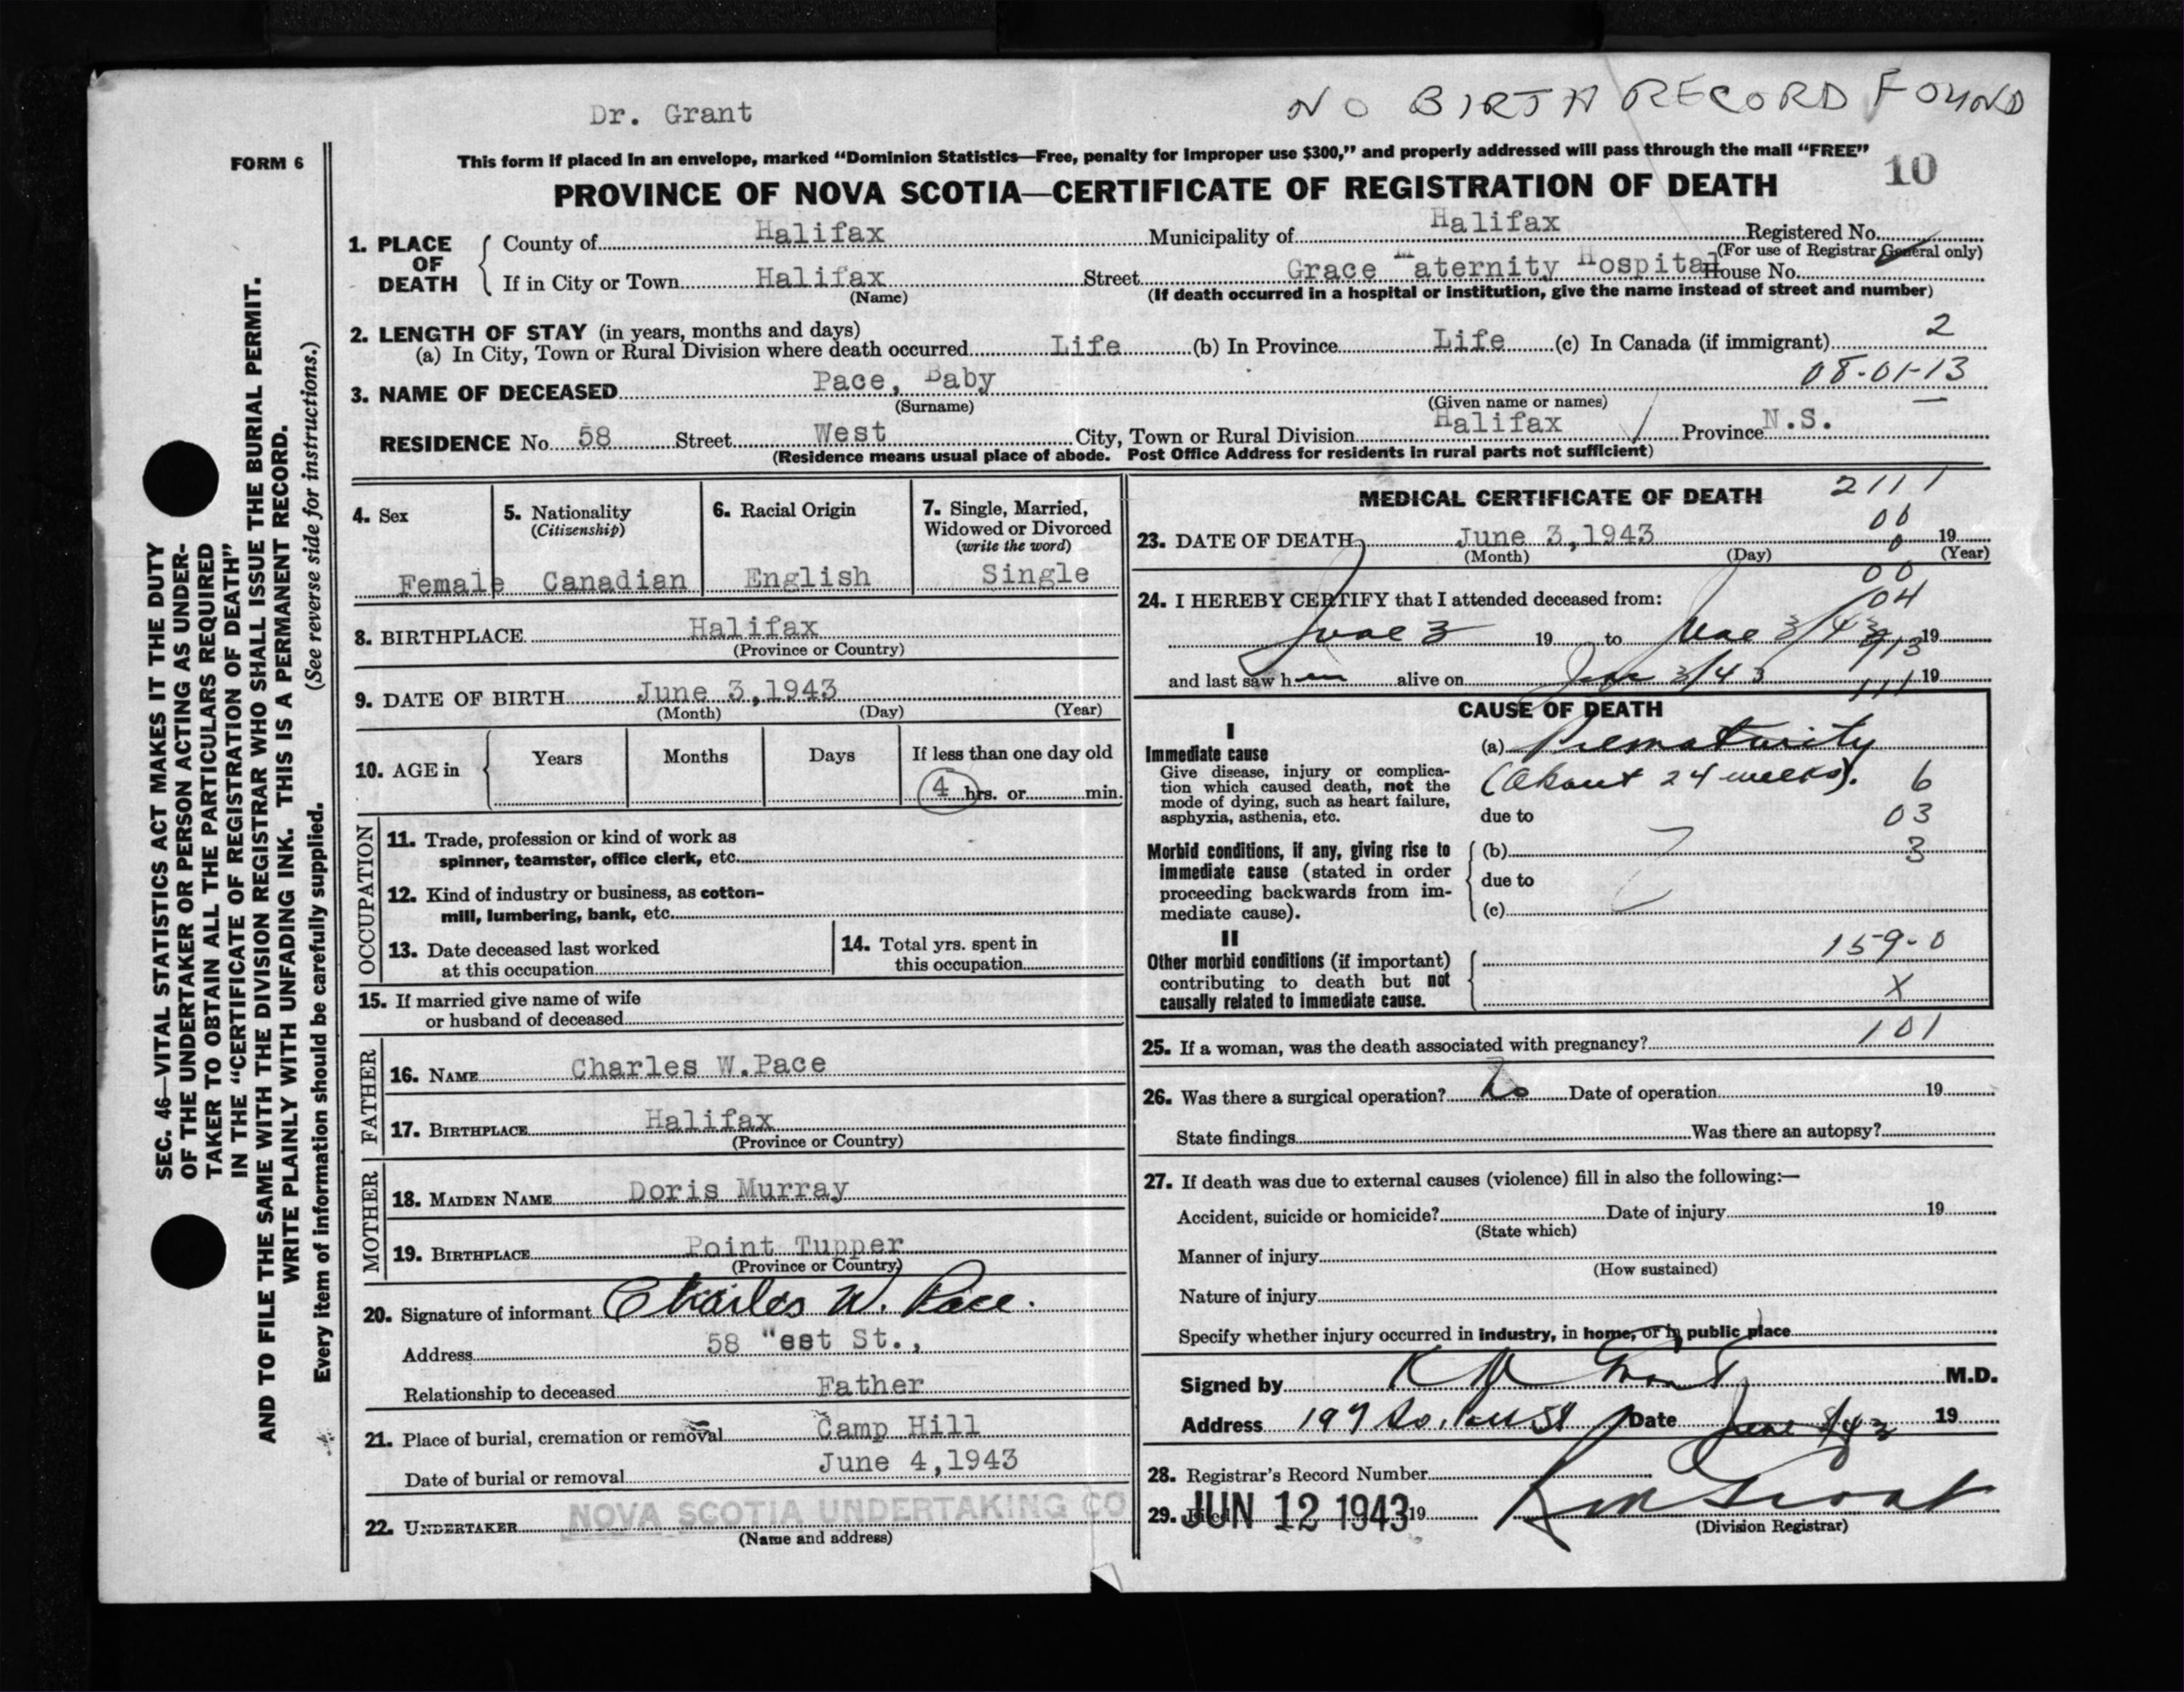 Dr. Grant
NO BIRTH RECORD FOUND
FORM 6
This form if placed in an envelope, marked “Dominion Statistics—Free, penalty for improper use $300,” and properly addressed will pass through the mail “FREE”
10
PROVINCE OF NOVA SCOTIA—CERTIFICATE OF REGISTRATION OF DEATH
1. PLACE OF DEATH
County of Halifax Municipality of Halifax Registered No.
(For use of Registrar General only)
If in City or Town Halifax Street Grace Maternity Hospital House No.
(Name) (If death occurred in a hospital or institution, give the name instead of street and number)
2. LENGTH OF STAY (in years, months and days)
(a) In City, Town or Rural Division where death occurred Life (b) In Province Life (c) In Canada (if immigrant) 2
08-01-13
3. NAME OF DECEASED Pace, Baby
(Surname) (Given name or names)
RESIDENCE No. 58 Street West City, Town or Rural Division Halifax Province N.S.
(Residence means usual place of abode. Post Office Address for residents in rural parts not sufficient)
4. Sex
Female
5. Nationality
(Citizenship)
Canadian
6. Racial Origin
English
7. Single, Married,
Widowed or Divorced
(write the word)
Single
8. BIRTHPLACE Halifax
(Province or Country)
9. DATE OF BIRTH June 3,1943
(Month) (Day) (Year)
10. AGE in Years Months Days If less than one day old
4 hrs. or min.
OCCUPATION
11. Trade, profession or kind of work as
spinner, teamster, office clerk, etc.
12. Kind of industry or business, as cotton-
mill, lumbering, bank, etc.
13. Date deceased last worked
at this occupation
14. Total yrs. spent in
this occupation
15. If married give name of wife
or husband of deceased
FATHER
16. NAME Charles W.Pace
17. BIRTHPLACE Halifax
(Province or Country)
MOTHER
18. MAIDEN NAME Doris Murray
19. BIRTHPLACE Point Tupper
(Province or Country)
20. Signature of informant Charles W. Pace.
Address 58 "est St.,
Relationship to deceased Father
21. Place of burial, cremation or removal Camp Hill
Date of burial or removal June 4,1943
22. UNDERTAKER NOVA SCOTIA UNDERTAKING CO
(Name and address)
MEDICAL CERTIFICATE OF DEATH
2111
00
0
23. DATE OF DEATH June 3,1943 19
(Month) (Day) (Year)
00
04
24. I HEREBY CERTIFY that I attended deceased from:
June 3 19 to June 3/43 19
and last saw h alive on June 3/43 19
111
CAUSE OF DEATH
I
Immediate cause
Give disease, injury or complica-
tion which caused death, not the
mode of dying, such as heart failure,
asphyxia, asthenia, etc.
(a) Prematurity
(About 24 weeks). 6
due to 03
Morbid conditions, if any, giving rise to
immediate cause (stated in order
proceeding backwards from im-
mediate cause).
(b) 3
due to
(c)
II
Other morbid conditions (if important)
contributing to death but not
causally related to immediate cause.
159-0
X
25. If a woman, was the death associated with pregnancy? 101
26. Was there a surgical operation? No Date of operation 19
State findings Was there an autopsy?
27. If death was due to external causes (violence) fill in also the following:—
Accident, suicide or homicide? Date of injury 19
(State which)
Manner of injury
(How sustained)
Nature of injury
Specify whether injury occurred in industry, in home, or in public place
Signed by K M Grant M.D.
Address 197 So. St Date June 43 19
28. Registrar's Record Number
29. Filed JUN 12 1943 19
(Division Registrar)
SEC. 46—VITAL STATISTICS ACT MAKES IT THE DUTY
OF THE UNDERTAKER OR PERSON ACTING AS UNDER-
TAKER TO OBTAIN ALL THE PARTICULARS REQUIRED
IN THE “CERTIFICATE OF REGISTRATION OF DEATH”
AND TO FILE THE SAME WITH THE DIVISION REGISTRAR WHO SHALL ISSUE THE BURIAL PERMIT.
WRITE PLAINLY WITH UNFADING INK. THIS IS A PERMANENT RECORD.
Every item of information should be carefully supplied. (See reverse side for instructions.)